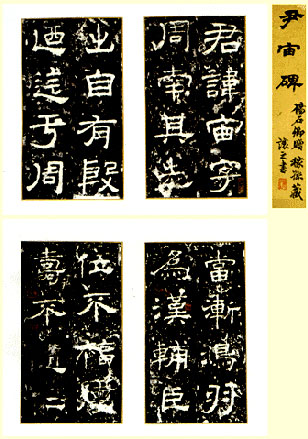 尹宙碑
楊石卿贈 稼孫藏
讓之書
君諱宙字
周南其先
出自有殷
迺迄于周
當漸鴻羽
為漢輔臣
位不福德
壽不